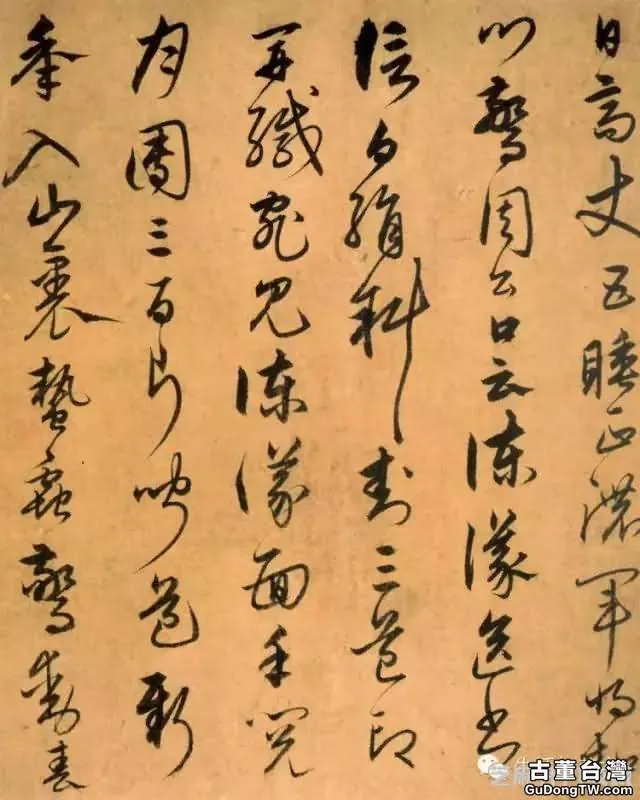 日高丈五睡正濃軍將
門驚周公口云諫議送書
信白絹斜封三道印
開緘宛見諫議面手閱
月團三百片聞道新
年入山裏蟄蟲驚動春
古董台灣
GuDongTW.com